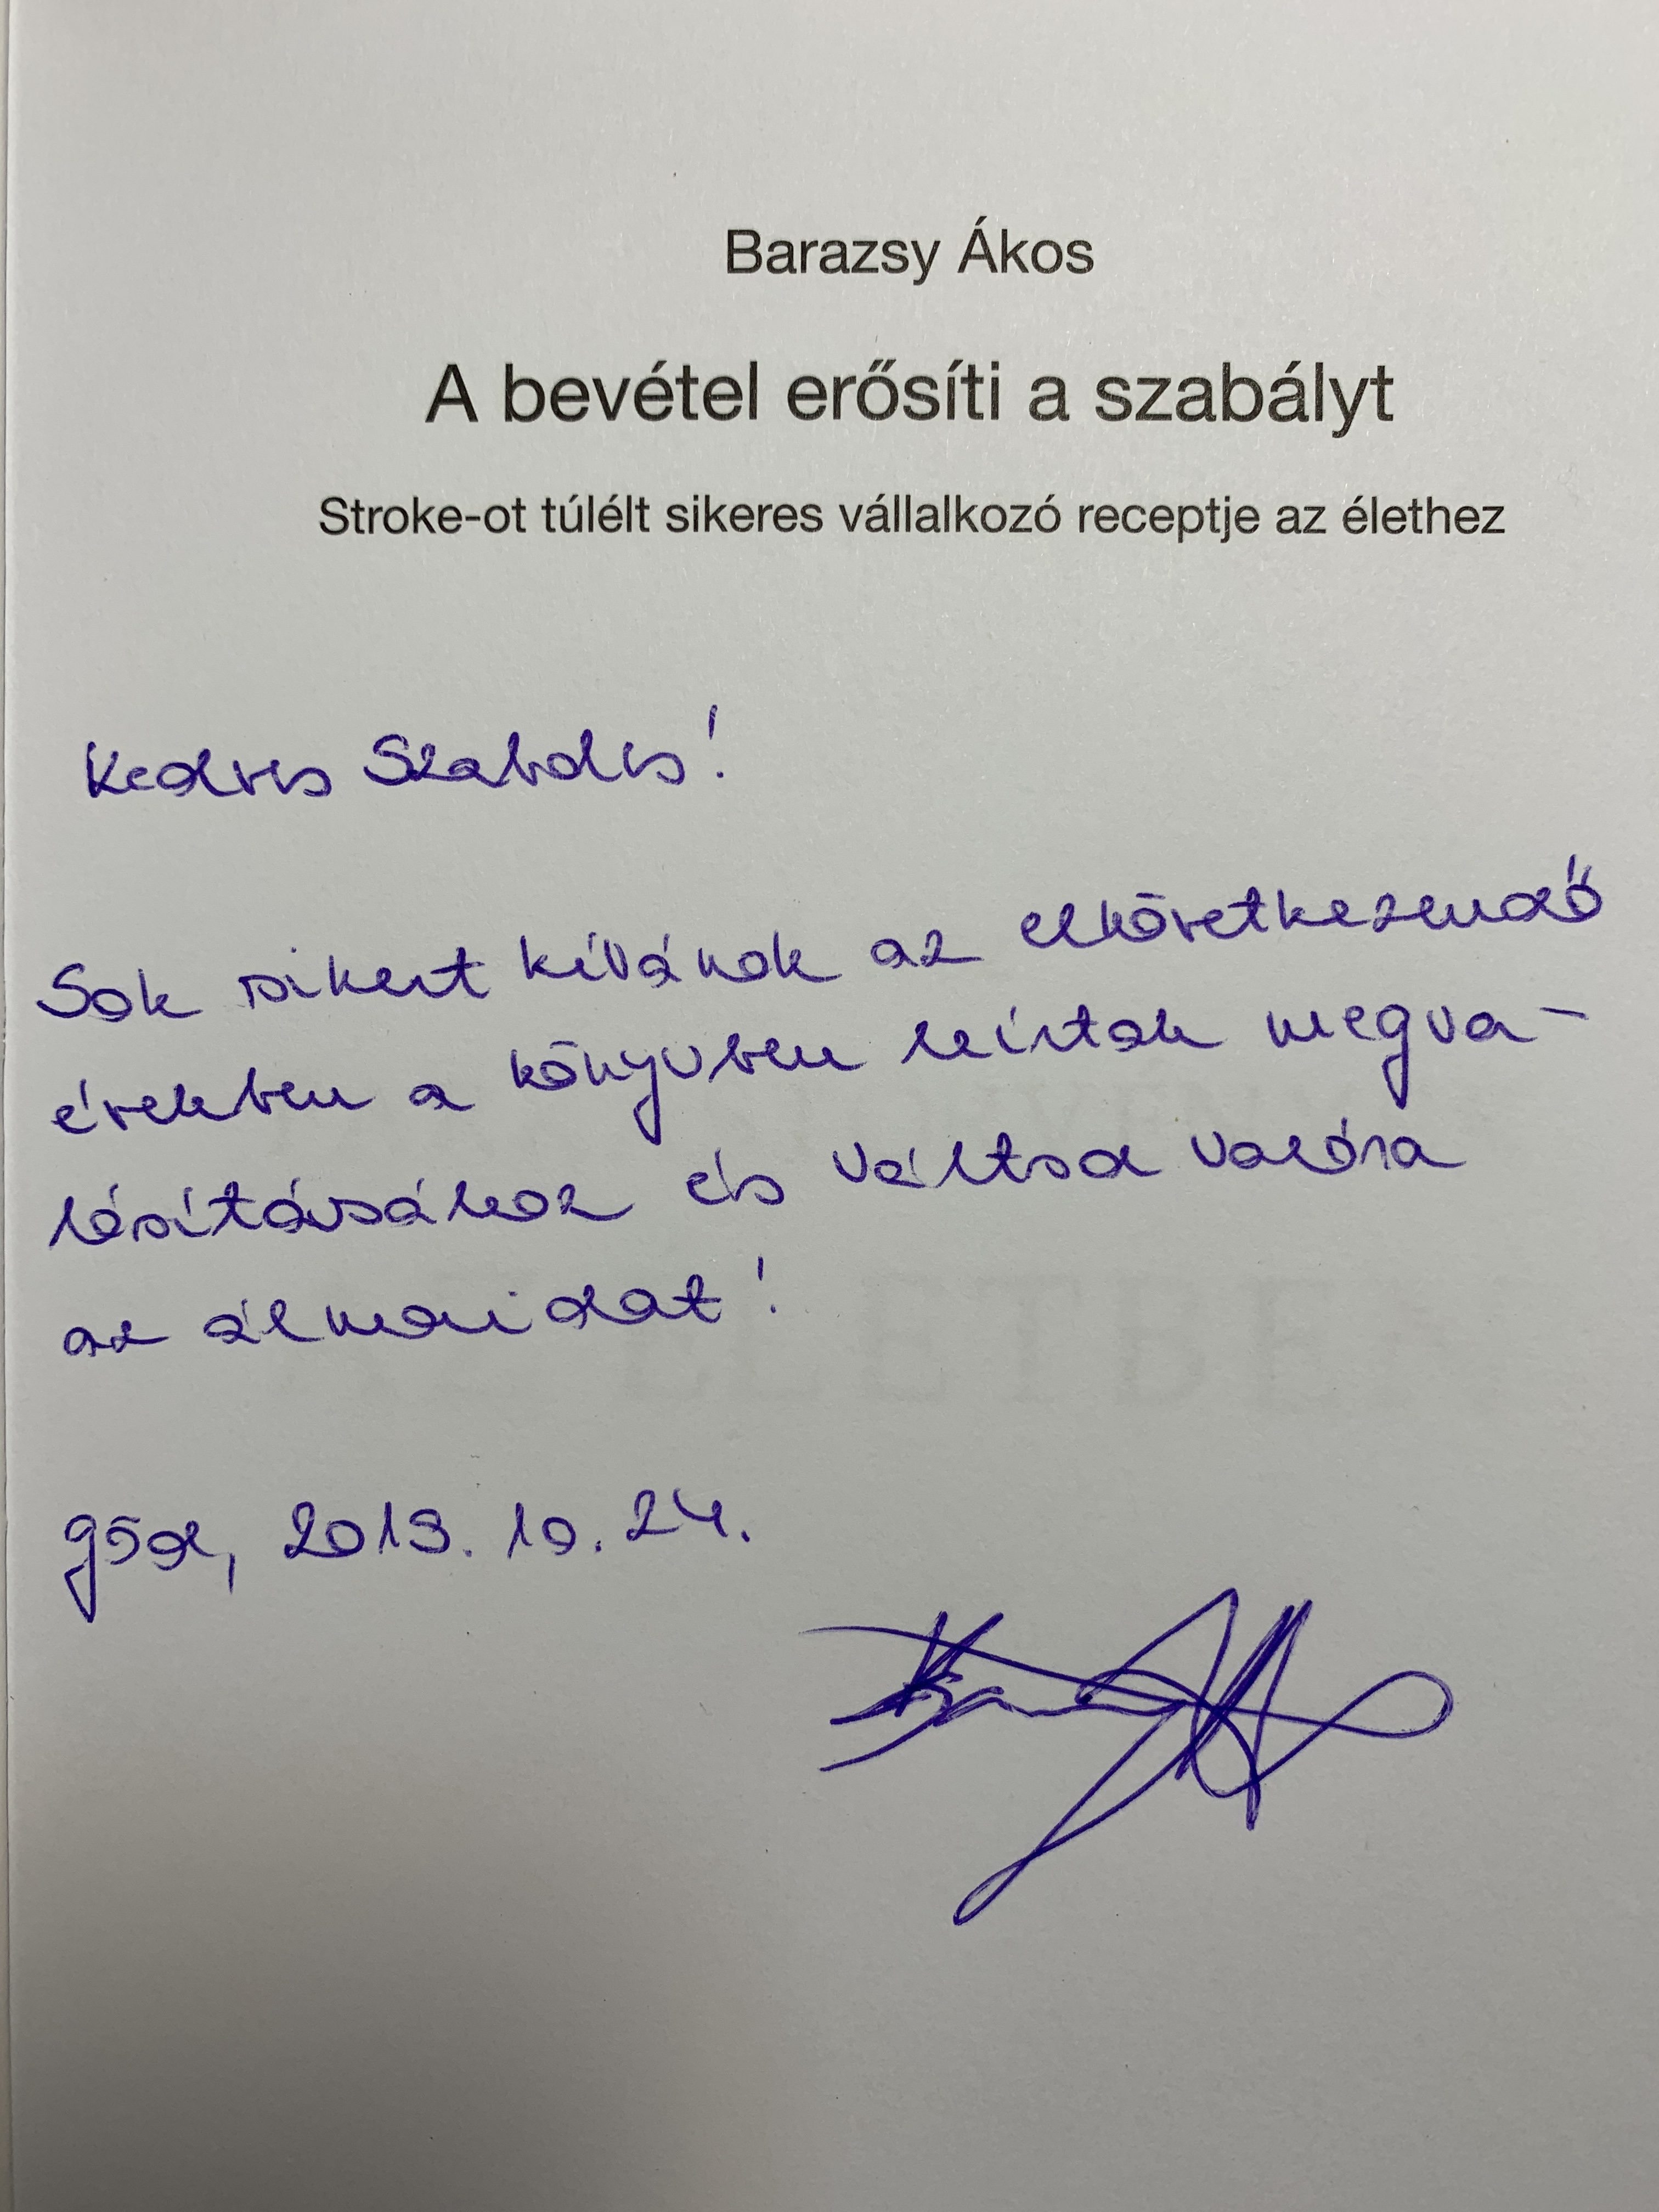 Barazsy Ákos
A bevétel erősíti a szabályt
Stroke-ot túlélt sikeres vállalkozó receptje az élethez
Kedves Szabolcs!
Sok sikert kívánok az elkövetkezendő
években a könyvben leírtak megva-
lósításához és váltsd valóra
az álmaidat!
Göd, 2019. 10. 24.